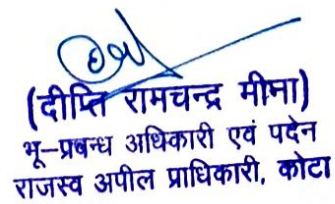 (दीप्ति रामचन्द्र मीमा)
भू-प्रबन्ध अधिकारी एवं पदेन
राजस्व अपील प्राधिकारी, कोटा